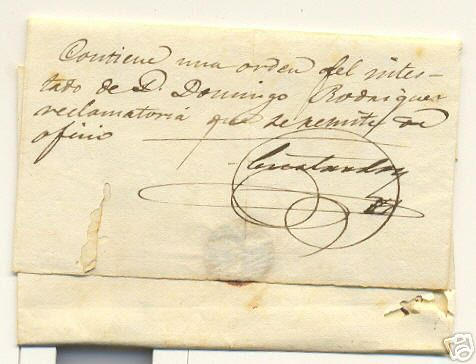 Contiene una orden del intes-
tado de D. Domingo Rodriguez
reclamatoria que se remite de
oficio